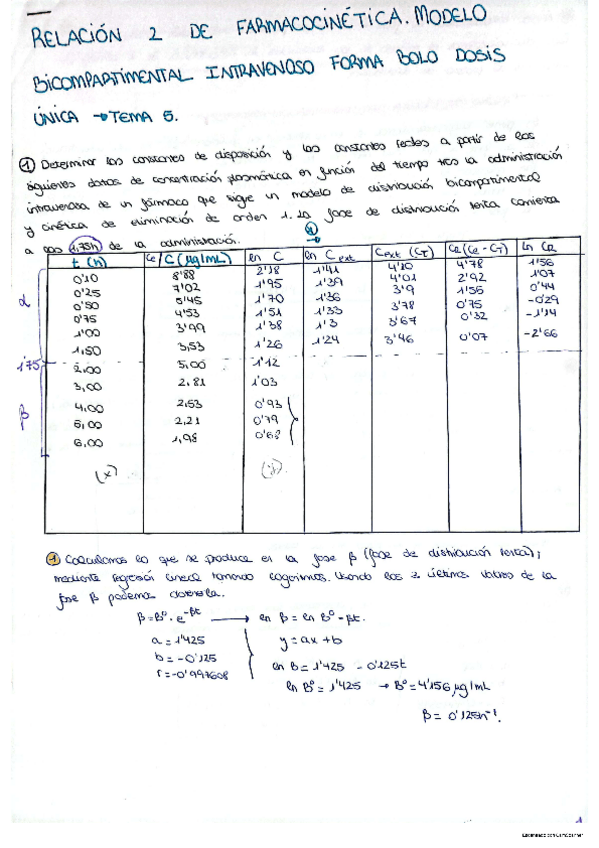 RELACIÓN 2 DE FARMACOCINÉTICA. MODELO
BICOMPARTIMENTAL INTRAVENOSO FORMA BOLO DOSIS
ÚNICA → TEMA 5.
① Determinar las constantes de disposición y las constantes reales a partir de los
siguientes datos de concentración plasmática en función del tiempo tras la administración
intravenosa de un fármaco que sigue un modelo de distribución bicompartimental
y cinética de eliminación de orden 1. La fase de distribución lenta comienza
a las 1,75h de la administración.
t (h) Ce/C (μg/mL) ln C ln C ext C ext (CT) CR (Ce - CT) ln CR
0'10 8'88 2'18 1'41 4'10 4'78 1'56
0'25 7'02 1'95 1'39 4'01 2'92 1'07
0'50 5'45 1'70 1'36 3'9 1'56 0'44
0'75 4'53 1'51 1'33 3'78 0'75 -0'29
1'00 3'99 1'38 1'3 3'67 0'32 -1'14
1,50 3,53 1'26 1'24 3'46 0'07 -2'66
α
1'75
2,00 5,00 1'12
3,00 2,81 1'03
4,00 2,53 0'93
5,00 2,21 0'79
6,00 1,98 0'68
β
(x) (y)
① Calculamos lo que se produce en la fase β (fase de distribución lenta);
mediante regresión lineal tomando logaritmos. Usando los 3 últimos valores de la
fase β podemos obtenerla.
β = B⁰ · e^-βt → ln β = ln B⁰ - βt.
a = 1'425 y = ax + b
b = -0'125 ln B = 1'425 - 0'125t
r = -0'997608 ln B⁰ = 1'425 → B⁰ = 4'156 μg/mL
β = 0'125h⁻¹.
1